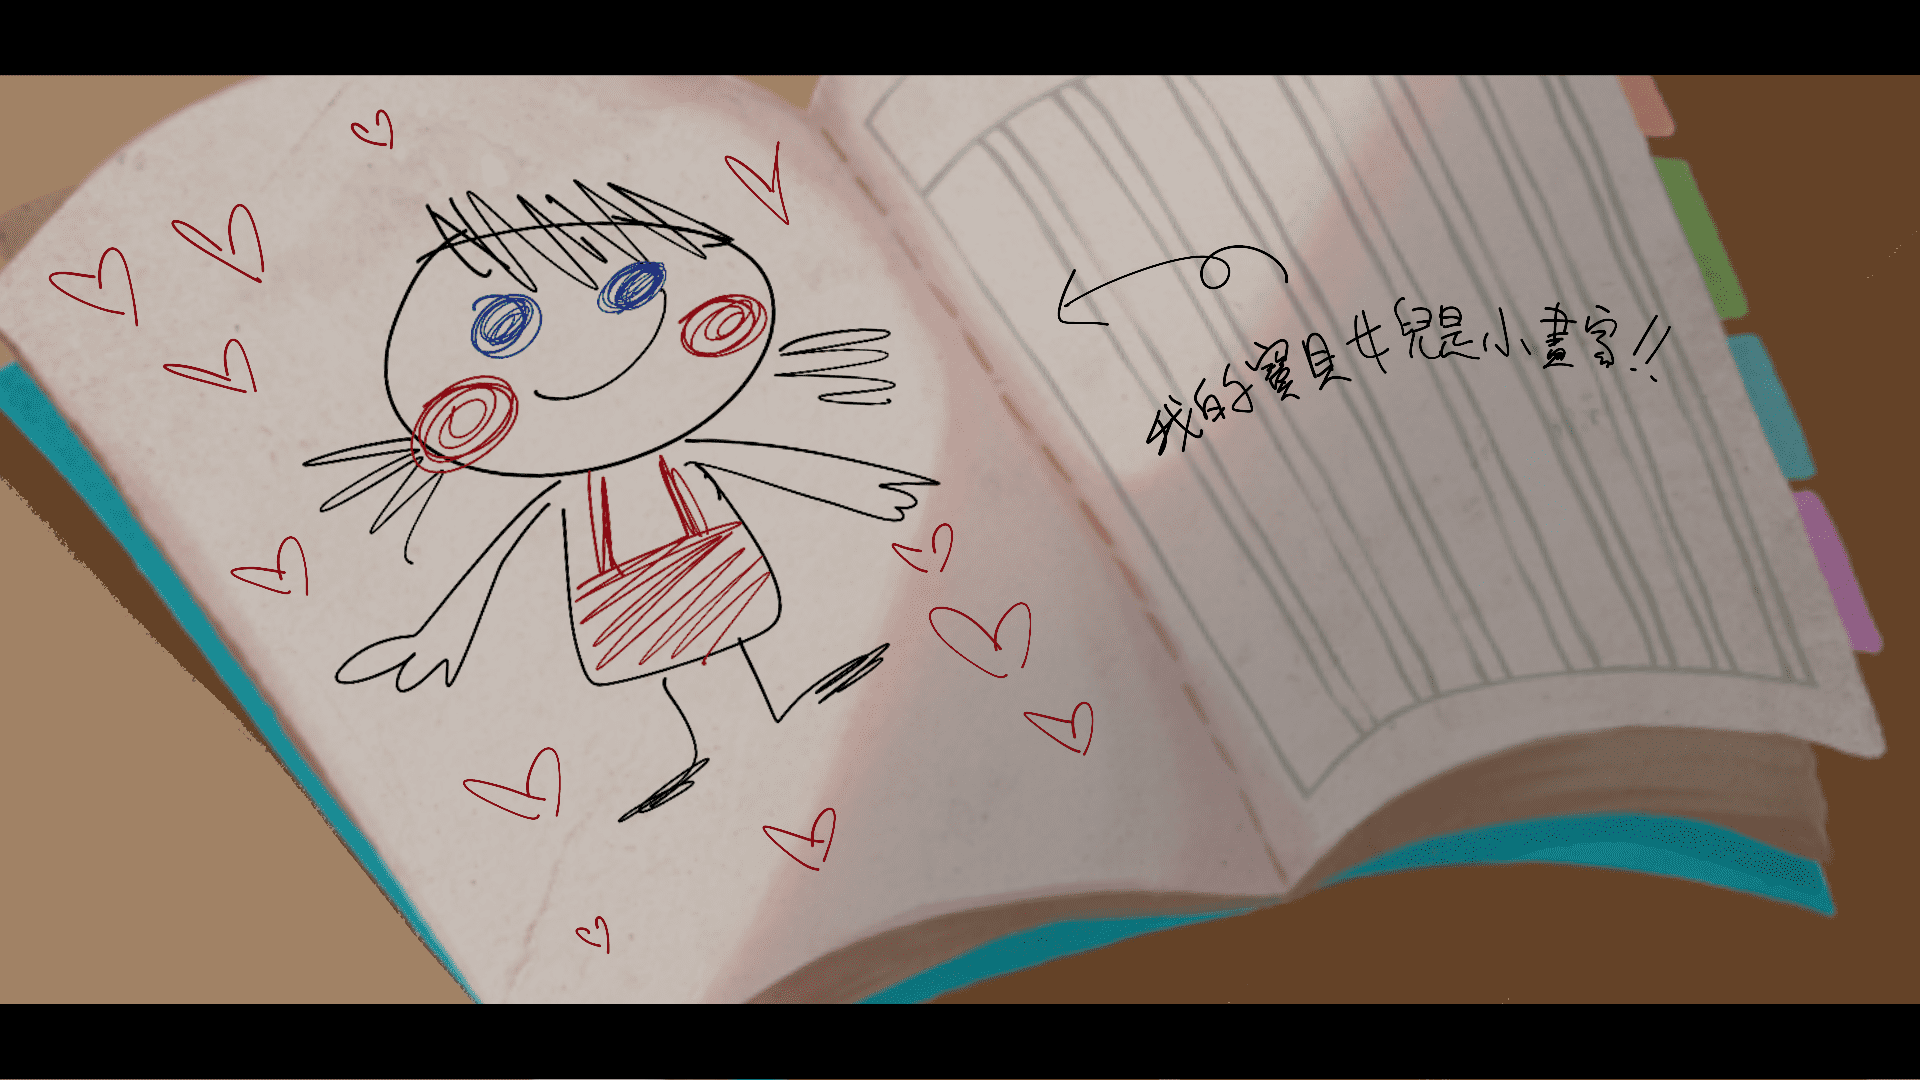 我的寶貝女兒是小畫家!!